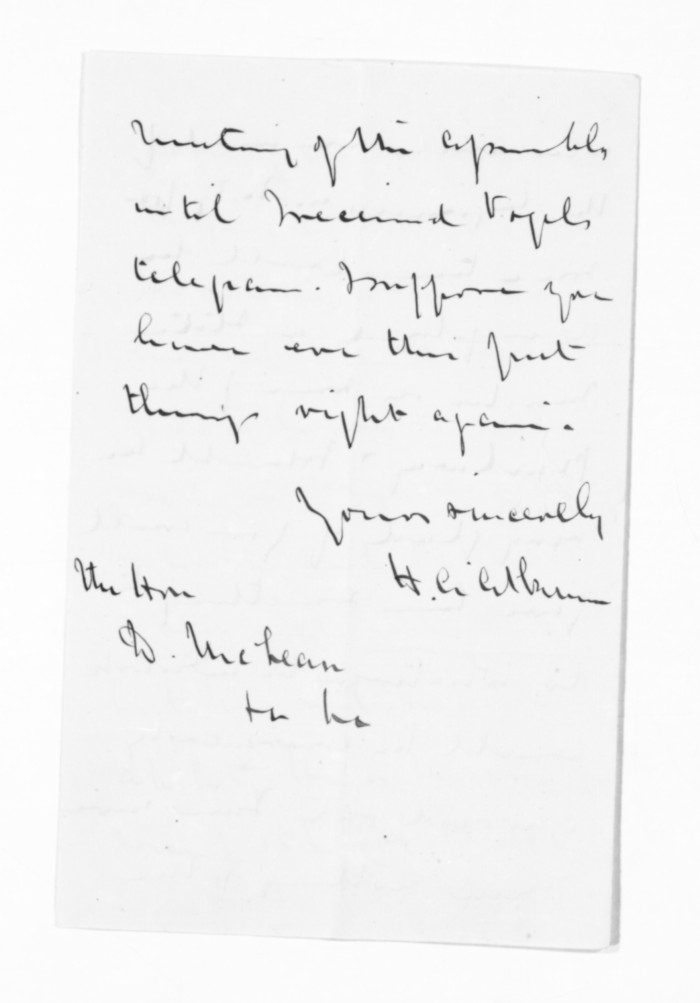 meeting of the Assembly
until I received Vogels
telegram. I suppose you
have ere this put
things right again.
Yours sincerely
The Hon
D. McLean